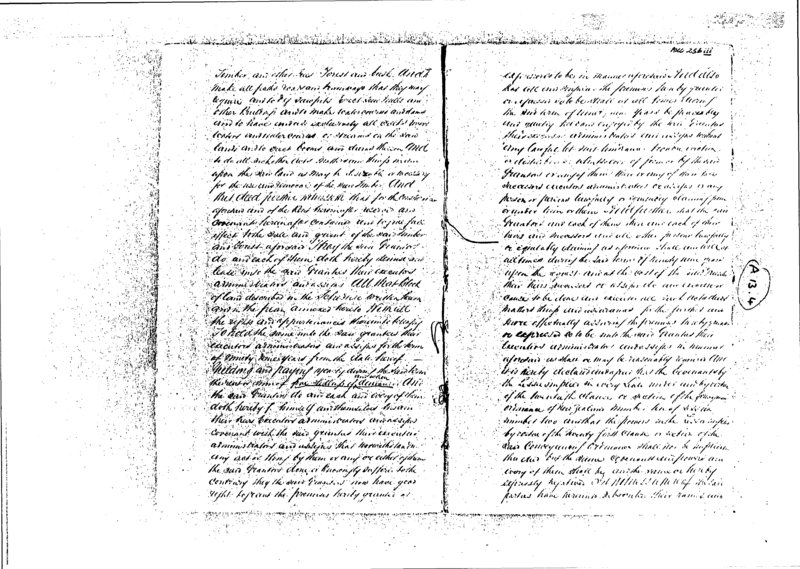 MLC 256 iii
Timber and other trees Forest and bush And to
make all paths roads and tramways that they may
require and to dig sawpits Erect saw mills and
other buildings and to make watercourses and dams
and to have and use exclusively all
and water courses or streams on the said
lands and to erect booms and dams thereon And
to do all such other acts matters and things in and
upon the said land as may be desirable or necessary
for the use and removal of the said timber And
this Deed further witnesseth that for the consideration
aforesaid and of the Rent hereinafter reserved and
covenants hereinafter contained and to give full
effect to the sale and grant of the said Timber
and Forest aforesaid They the said Grantors
do and each of them doth hereby demise and
lease unto the said Grantees their executors
administrators and assigns All that Block
of land described in the Schedule written hereon
and in the plan annexed hereto With all
the rights and appurtenances thereunto belonging
To hold the same unto the said grantees their
executors administrators and assigns for the term
of Ninety nine years from the date hereof
Yielding and paying yearly during the said term
the rent or sum of if demanded And
the said Grantors do and each and every of them
doth hereby for himself and themselves his and
their heirs Executors administrators and assigns
covenant with the said grantees their executors
administrators and assigns that notwithstanding
any act or thing by them or any or either of them
the said Grantors done or knowingly suffered to the
contrary they the said Grantors now have good
right to grant the premises hereby granted or
expressed to be in manner aforesaid And also
that all and singular the premises hereby granted
or expressed so to be shall at all times during
the said term of ninety nine years be peaceably
and quietly held and enjoyed by the said Grantees
their executors administrators and assigns without
any lawful let suit hindrance trouble eviction
or disturbance whatsoever of from or by the said
Grantors or any of them their or any of their heirs
successors executors administrators or assigns or any
person or persons lawfully or equitably claiming from
or under him or them And further that the said
Grantors and each of them their and each of their
heirs and successors and all other persons lawfully
or equitably claiming as aforesaid shall and will at
all times during the said term of ninety nine years
upon the request and at the cost of the said Grantees
their heirs successors or assigns do and execute or
cause to be done and executed all such acts deeds
matters things and assurances for the further and
more effectually assuring the premises hereby granted
or expressed so to be unto the said Grantees their
executors administrators and assigns in manner
aforesaid as shall or may be reasonably required And
it is hereby declared and agreed that the covenants by
the Lessee implied in every Lease under and by virtue
of the twentieth clause or section of the Conveyancing
ordinance of New Zealand number ten of Session
number two and that the powers in the implied
by virtue of the twenty first clause or section of the
said Conveyancing Ordinance shall not be implied in
this deed but the same covenants and powers and
every of them shall be and the same are hereby
expressly negatived In Witness whereof the said
parties have hereunto subscribed their names and
A 13.4